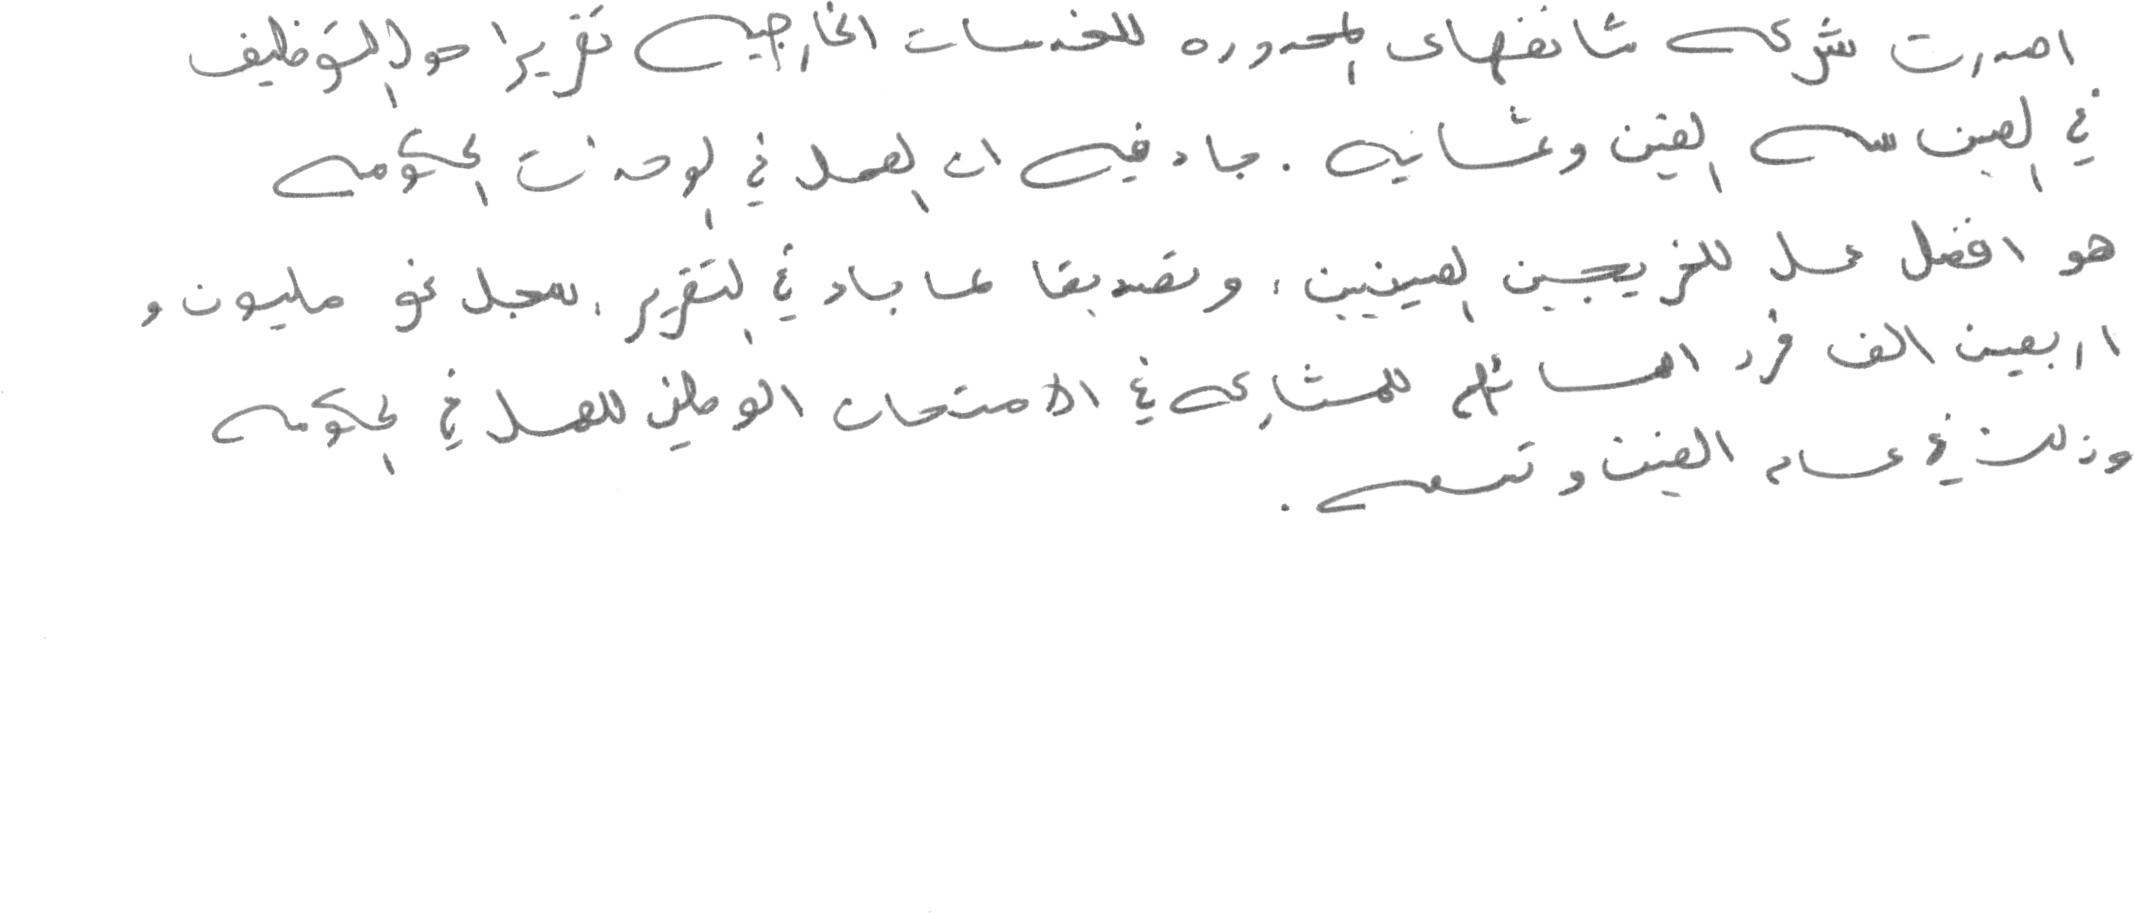 اصدرت شركه شانغهاى المحدوده للخدمات الخارجيه تقريرا حول التوظيف
في الصين سنه الفين وثمانيه . جاء فيه ان العمل في الوحدات الحكوميه
هو افضل عمل للخريجين الصينيين ، وتصديقا لما جاء في التقرير ، سجل نحو مليون و
اربعين الف فرد اسمائهم للمشاركه في الامتحان الوطني للعمل في الحكومه
وذلك في عام الفين وتسعه .